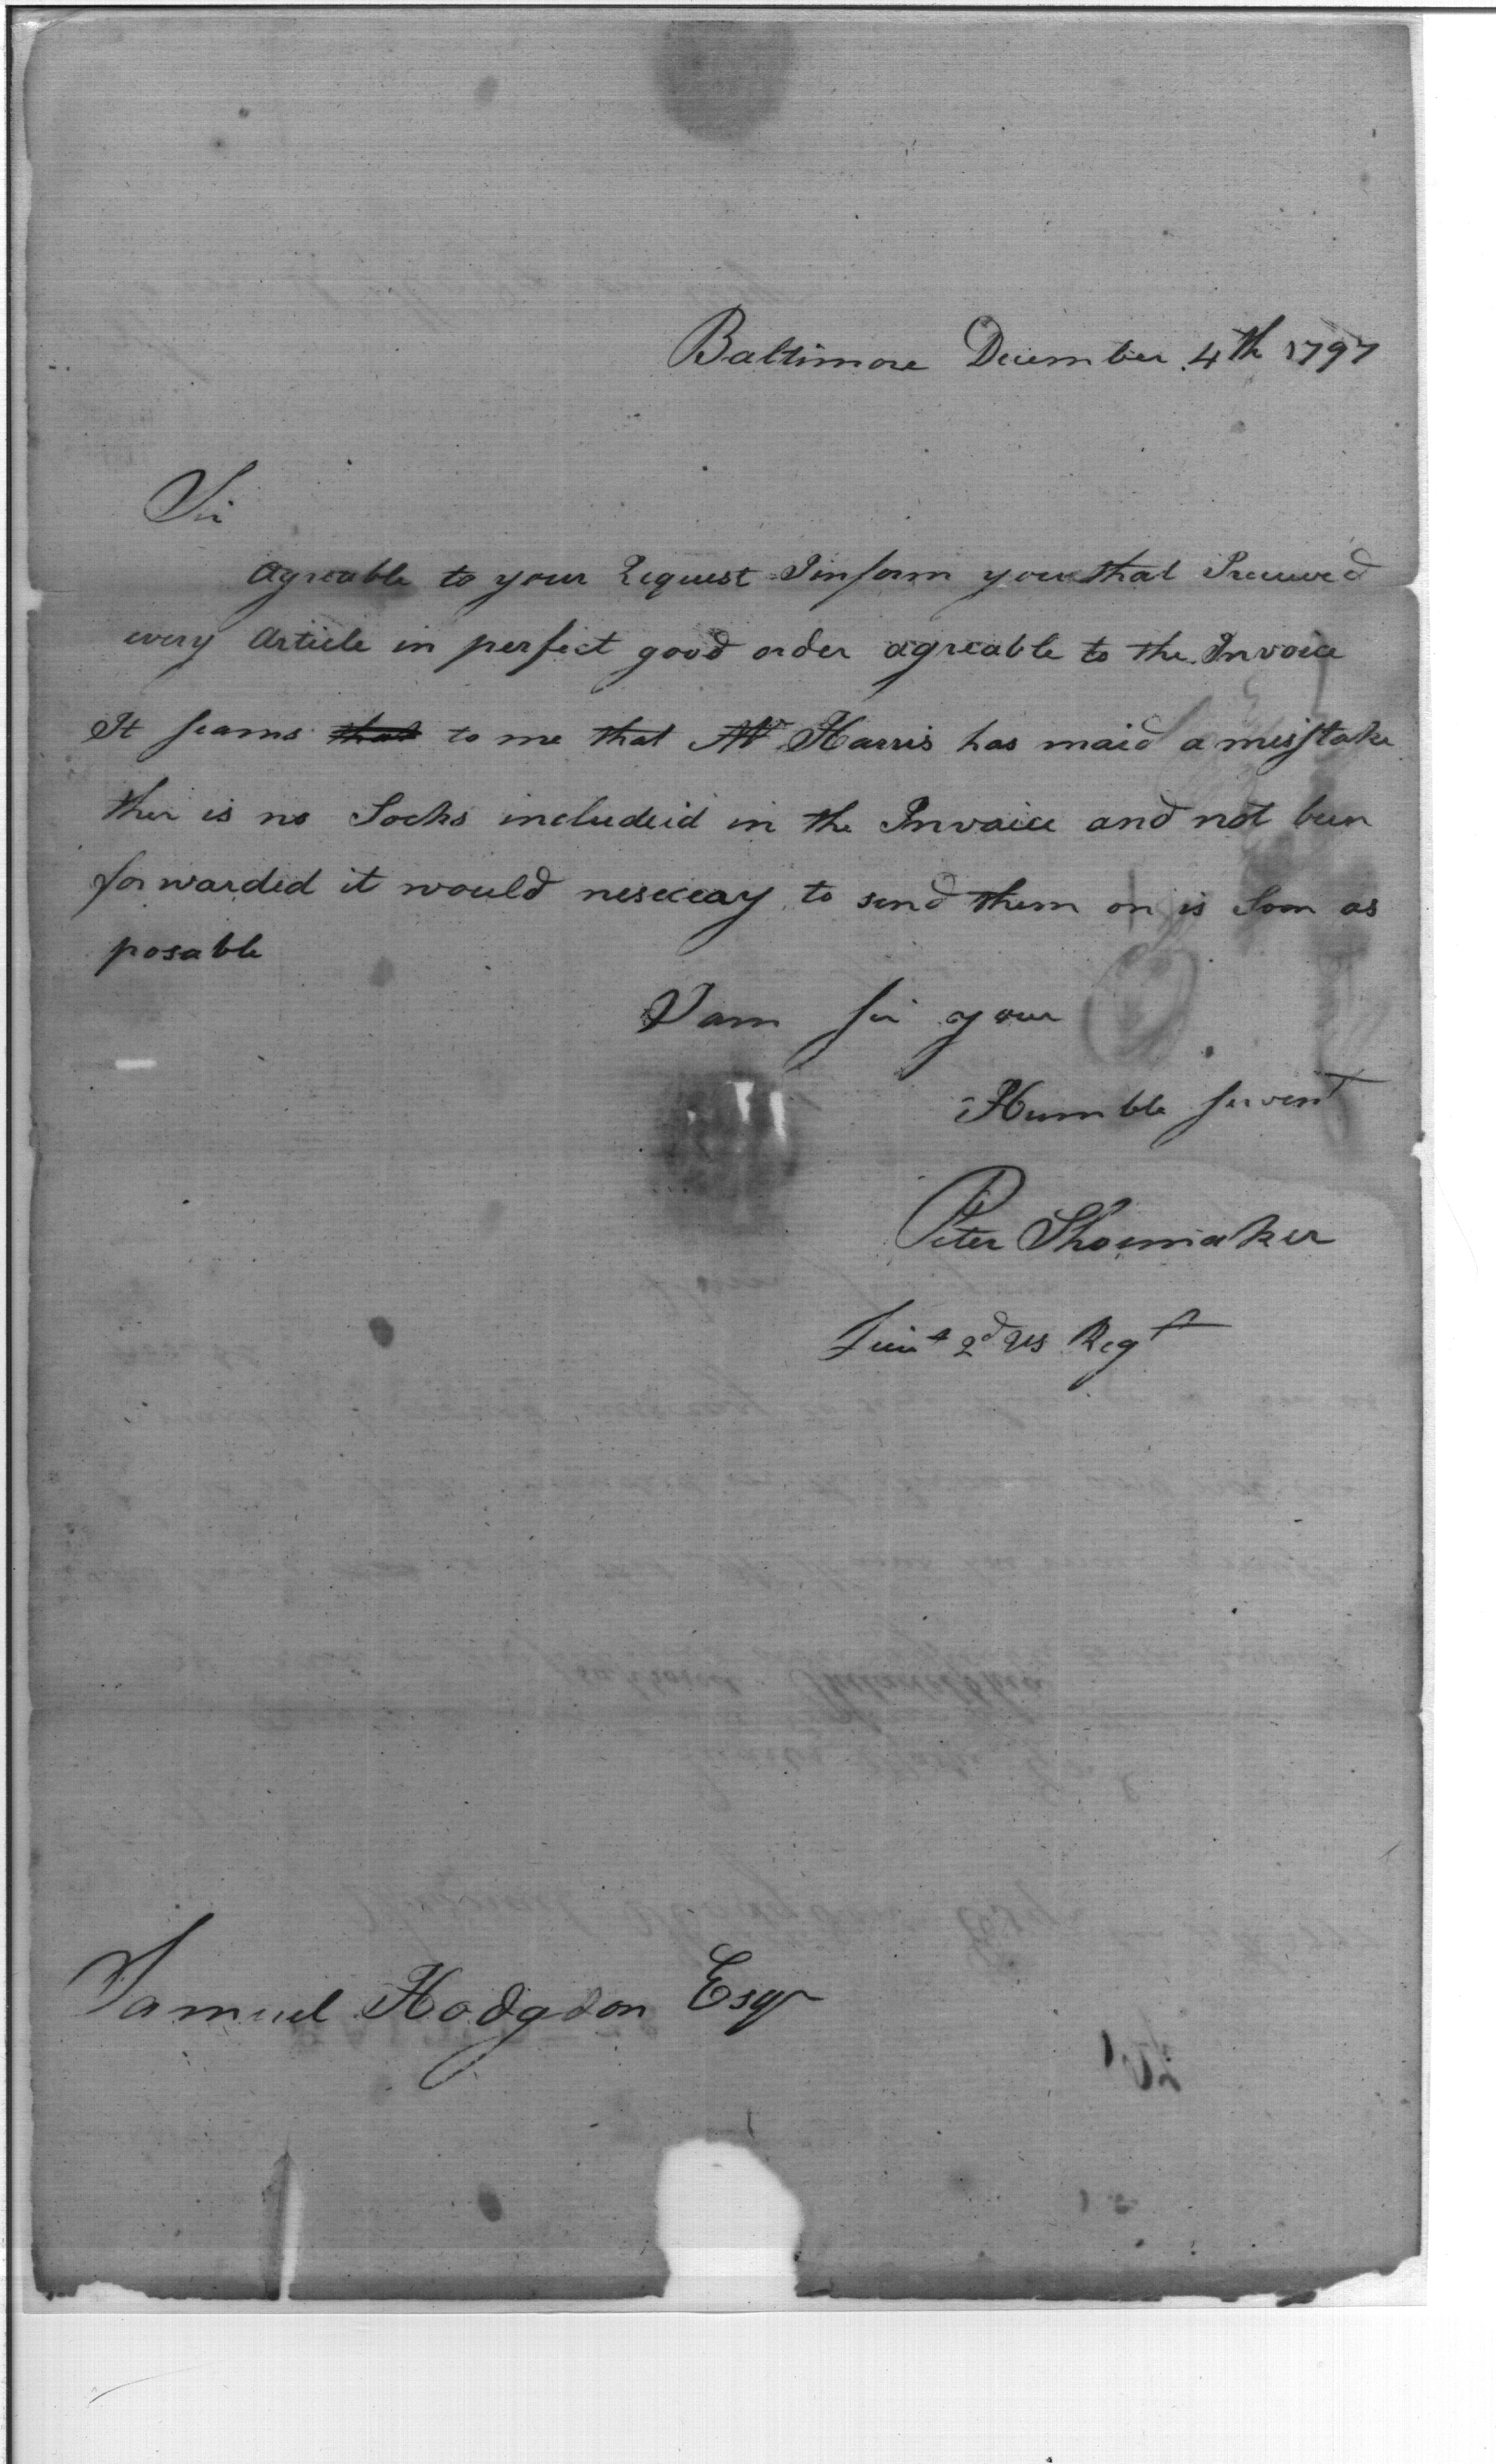 Baltimore December 4th 1797
Sir
Agreable to your Request I inform you that I received
every Article in perfect good order agreable to the Invoice
It seams that to me that Mr Harris has maid a misstake
ther is no Socks includeid in the Invoice and not been
forwarded it would neseceay to send them on is Soon as
posable
I am Sir your
Humble Servent
Peter Shoemaker
Lieut 2d US Regt
Samuel Hodgdon Esqr